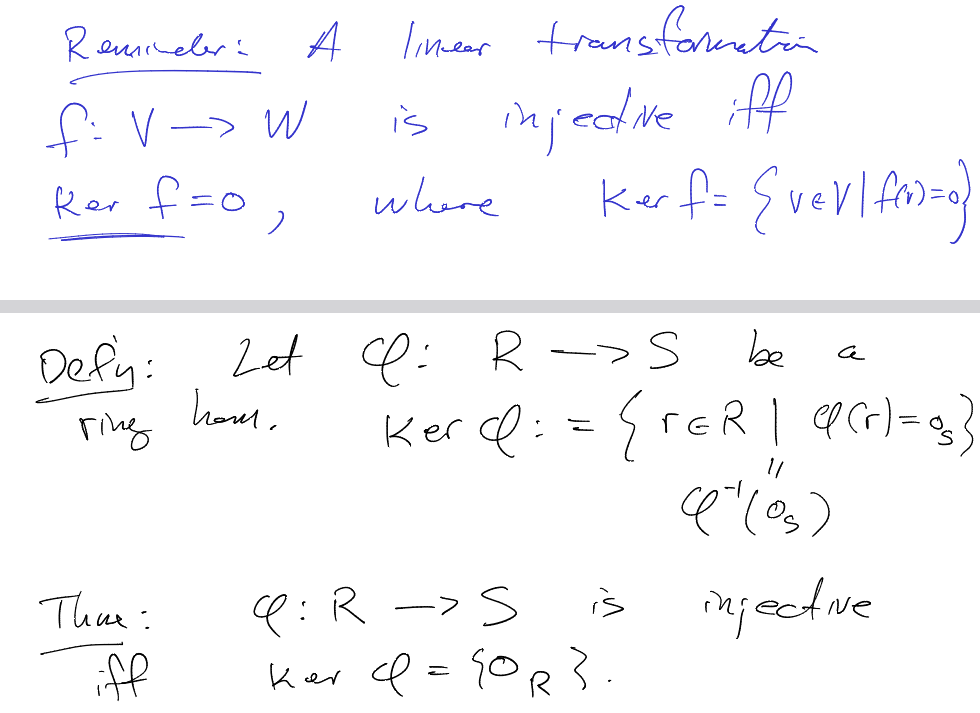 Reminder: A linear transformation
f: V → W is injective iff
Ker f = 0, where Ker f = {v ∈ V | f(v) = 0}
Defn: Let φ: R → S be a
ring hom. Ker φ := {r ∈ R | φ(r) = 0_S}
||
φ⁻¹(0_S)
Thm: φ: R → S is injective
iff Ker φ = {0_R}.